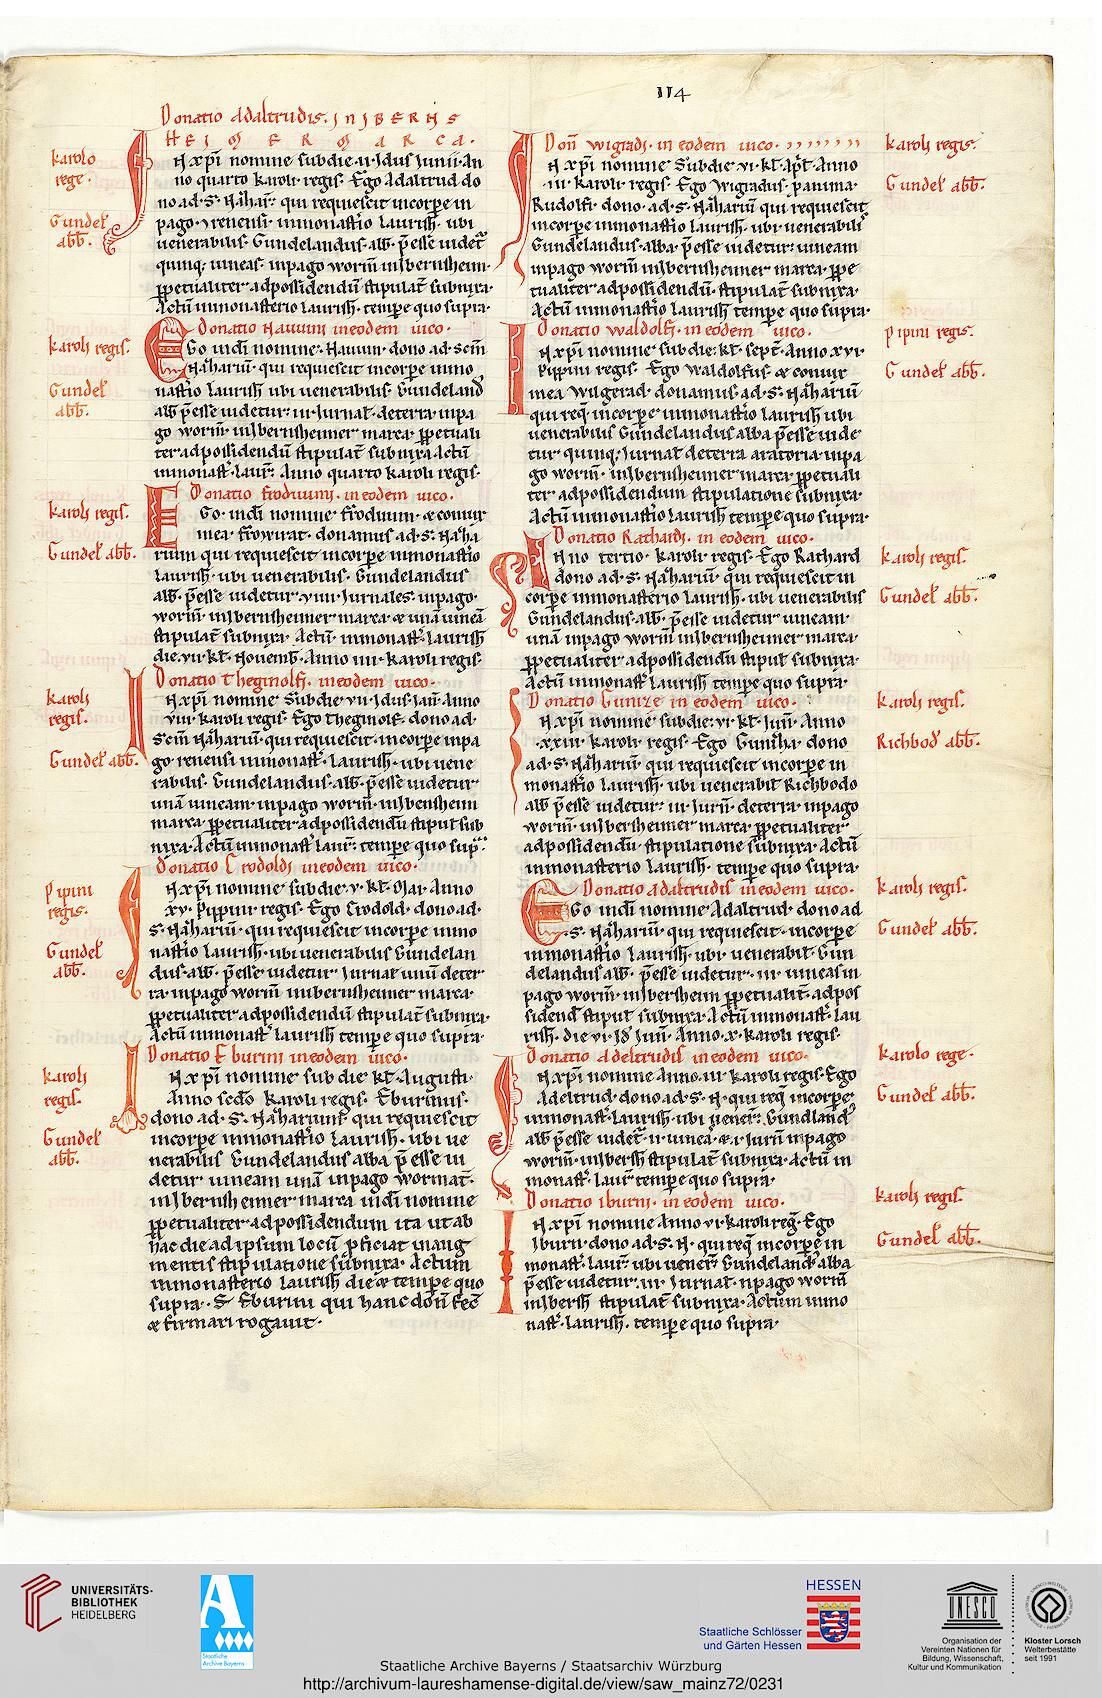 114
Donatio Adaltrudis. IN JBERNS
HEIMERMARCA.
karolo
rege.
Gundel
abb.
N xpi nomine sub die .ii. Idus Junii. An
no quarto karoli regis. Ego Adaltrud do
no ad .S. N&harium qui requiescit in corpore in
pago renensi in monastio Laurish. ubi
venerabilis Gundelandus abb. p̄esse videt̄
quinq; vineas. in pago worm̄ in Jbernsheim.
ppetualiter ad possidendū. stipulat̄ subnixa.
Actū in monasterio laurish. tempe quo supra.
Donatio Hauuini in eodem vico.
karoli regis.
Gundel
abb.
EGo in di nomine. Hauuin. dono ad. Scm̄
N&harium. qui requiescit in corpe in mo
nastio laurish ubi venerabilis Gundeland
abb p̄esse videtur. iii. Jurnal. de terra in pa
go worm̄ in Jbernsheimer marca. ppetuali
ter ad possidendū stipulat̄ subnixa Actū
in monast̄. laur̄. Anno quarto karoli regis.
Donatio froduuini. in eodem vico.
karoli regis.
Gundel abb.
EGo. in di nomine froduuin. & coniux
mea. frowirat. donamus ad .S. N&ha
rium qui requiescit in corpe in monastio
laurish. ubi venerabilis. Gundelandus
abb. p̄esse videtur. viiii. Jurnales. in pago.
worm̄ in Jbernsheimer marca. & unā vineā
stipulat̄ subnixa. Actū in monast̄. laurish
die. vii. kl. Novemb̄. Anno iiii. karoli regis.
Donatio Theginolfi. in eodem vico.
karoli
regis.
Gundel abb.
N xpi nomine Sub die. vii. Idus Jan̄. Anno
viiii. karoli regis. Ego theginolf. dono ad.
Scm̄ N&hariū. qui requiescit. in corpe in pa
go renensi in monast̄. laurish. ubi vene
rabilis. Gundelandus. abb. p̄esse videtur
unā vineam in pago worm̄. in Jbensheim
marca ppetualiter ad possidendū stipul sub
nixa. Actū in monast̄ laur̄. tempe quo sup̄.
Donatio Crodoldi in eodem vico.
Pipini
regis.
Gundel
abb.
N xpi nomine sub die. v. kl. Mai. Anno
xv. pippini regis. Ego Crodold. dono ad.
S. N&hariū. qui requiescit in corpe in mo
nastio laurish. ubi venerabilis Gundelan
dus. abb. p̄esse videtur Jurnal unū de ter
ra. in pago worm̄ in Jbernsheimer marca.
ppetualiter ad possidendū stipulat̄ subnixa.
Actū in monast̄ laurish tempe quo supra.
Donatio Eburini in eodem vico.
karoli
regis.
Gundel
abb.
N xpi nomine sub die kl. Augusti.
Anno scdo karoli regis. Eburinus.
dono ad .S. N&harium. qui requiescit
in corpe in monastio laurish. ubi ve
nerabilis Gundelandus abba p̄ esse vi
detur vineam unā in pago wormat̄.
in Jbernsheimer marca in di nomine
ppetualiter. ad possidendum ita ut ab
hac die ad ipsum locū pficiat in aug
mentis stipulatione subnixa. Actum
in monasterio laurish die & tempe quo
supra. S. Eburini qui hanc don̄ fec̄
& firmari rogavit.
Don̄ wigradi. in eodem vico.
karoli regis.
Gundel abb.
N xpi nomine Sub die vi. kl. Apl. Anno
iii. karoli regis. Ego wigradus. p anima.
Rudolfi. dono. ad .S. N&hariū qui requiescit
in corpe in monastio laurish. ubi venerabilis
Gundelandus. abba. p̄esse videtur. vineam
in pago worm̄ in Jbernsheimer marca. ppe
tualiter ad possidendū. stipulat̄ subnixa.
Actū in monastio laurish tempe quo supra.
Donatio waldolfi. in eodem vico.
Pipini regis.
Gundel abb.
N xpi nomine sub die. kl. sept̄. Anno xvi.
Pippini regis. Ego waldolfus & coniux
mea wigerad. donamus. ad .S. N&hariū
qui req̄ in corpe in monastio laurish ubi
venerabilis Gundelandus abba p̄esse vide
tur quinq; Jurnal de terra aratoria in pa
go worm̄. in Jbernsheimer marca. ppetuali
ter ad possidendum stipulatione subnixa.
Actū in monastio laurish tempe quo supra.
Donatio Rathardi. in eodem vico.
karoli regis.
Gundel abb.
Nno tertio. karoli regis. Ego Rathard
dono ad .S. N&harium. qui requiescit in
corpe in monasterio laurish. ubi venerabilis
Gundelandus. abb. p̄esse videtur vineam.
unā in pago worm̄ in Jbernsheimer marca.
ppetualiter ad possidendū stipul subnixa.
Actū in monast̄ laurish tempe quo supra.
Donatio Gunize in eodem vico.
karoli regis.
Richbod abb.
N xpi nomine sub die. vi. kl. Jun̄. Anno
xxiii. karoli regis. Ego dono
ad .S. N&hariū qui requiescit in corpe in
monastio laurish ubi venerabil Richbodo
abb p̄esse videtur. iii. Jurn̄. de terra. in pago
worm̄. in Jbersheimer marca ppetualiter
ad possidendū. stipulatione subnixa. Actū
in monasterio laurish. tempe quo supra.
Donatio Adaltrudis in eodem vico.
karoli regis.
Gundel abb.
EGo in di nomine Adaltrud. dono ad
.S. N&hariū. qui requiescit. in corpe
in monastio laurish. ubi. venerabil. Gun
delandus abb. p̄esse videtur. iii. vineas in
pago worm̄. in Jbersheim ppetualit̄. ad pos
sidend̄ stipul subnixa. Actū in monast̄. lau
rish. die vi. Id Jun̄. Anno. x. karoli regis.
Donatio Adeltrudis in eodem vico.
karolo rege.
Gundel abb.
N xpi nomine Anno. iii. karoli regis. Ego
Adeltrud. dono ad .S. N. qui req̄ in corpe
in monast̄. laurish. ubi vener̄. Gundland
abb p̄esse videt̄. ii. vineā. & .i. Jurn̄ in pago
worm̄. in Jbersh stipulat̄ subnixa. Actū in
monast̄. laur̄ tempe quo supra.
Donatio iburni. in eodem vico.
karoli regis.
Gundel abb.
N xpi nomine Anno vi. karoli reg̅. Ego
Iburn. dono ad .S. N. qui req̄ in corpe in
monast̄. laur̄. ubi vener̄. Gundeland abba
p̄esse videtur. iii. Jurnal. in pago worm̄
in Jbersh stipulat̄ subnixa. Actum in mo
nast̄. laurish. tempe quo supra.
UNIVERSITÄTS-
BIBLIOTHEK
HEIDELBERG
Staatliche
Archive Bayerns
HESSEN
Staatliche Schlösser
und Gärten Hessen
UNESCO
Organisation der
Vereinten Nationen für
Bildung, Wissenschaft,
Kultur und Kommunikation
Kloster Lorsch
Welterbestätte
seit 1991
Staatliche Archive Bayerns / Staatsarchiv Würzburg
http://archivum-laureshamense-digital.de/view/saw_mainz72/0231